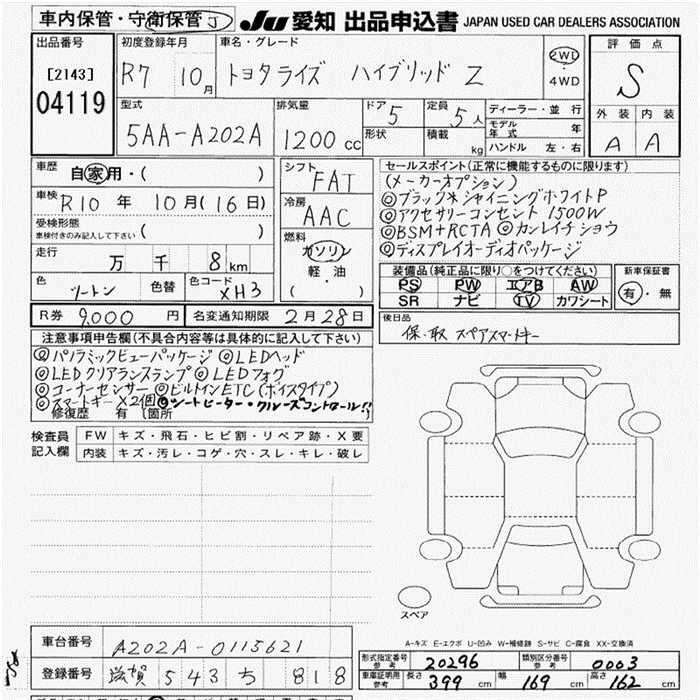 車内保管・守衛保管 J JU 愛知 出品申込書 JAPAN USED CAR DEALERS ASSOCIATION
出品番号
[2143]
04119
初度登録年月
R7 10月
車名・グレード
トヨタライズ ハイブリッド Z
2WD
・
4WD
評価点
S
外装 内装
A A
型式
5AA-A202A
排気量
1200 cc
ドア
5
形状
定員
5人
積載
kg
ディーラー・並行
モデル年式 年
ハンドル 左・右
車歴
自家用・( )
車検
R10 年 10月(16日)
受検形態
車検付きのみ記入して下さい ( )
走行
万 千 8km
色
ツートン
色替
色コード
XH3
シフト
FAT
冷房
AAC
燃料
ガソリン
軽・油
( ・ )
セールスポイント(正常に機能するものに限ります)
(メーカーオプション)
◎ブラック×シャイニングホワイトP
◎アクセサリーコンセント 1500W
◎BSM+RCTA ◎カンレイチショウ
◎ディスプレイオーディオパッケージ
装備品(純正品に限り○をつけてください)
PS PW エアB AW
SR ナビ TV カワシート
新車保証書
有・無
R券 9,000 円 名変通知期限 2月28日
後日品
保・取 スペアスマートキー
注意事項申告欄(不具合内容等は具体的に記入して下さい)
◎パノラミックビューパッケージ ◎LEDヘッド
◎LEDクリアランスランプ ◎LEDフォグ
◎コーナーセンサー ◎ビルトインETC(ボイスタイプ)
◎スマートキー×2個 ◎シートヒーター・クルーズコントロール!!
修復歴 有 [箇所
検査員
記入欄
FW キズ・飛石・ヒビ割・リペア跡・X要
内装 キズ・汚レ・コゲ・穴・スレ・キレ・破レ
スペア
A-キズ E-エクボ U-凹み W-補修跡 S-サビ C-腐食 XX-交換済
車台番号 A202A-0115621
登録番号 滋賀 543 ち 818
形式指定番号 参考 20296 類別区分番号 参考 0003
車庫証明用 参考 長さ 399 cm 幅 169 cm 高さ 162 cm